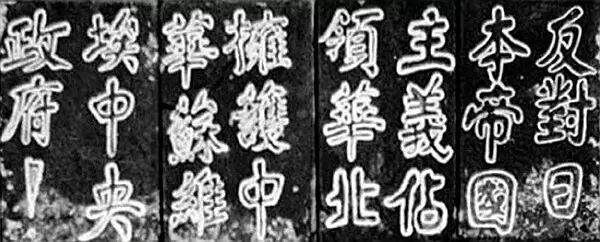 反對日
本帝國
主義佔
領華北
擁護中
華蘇維
埃中央
政府！